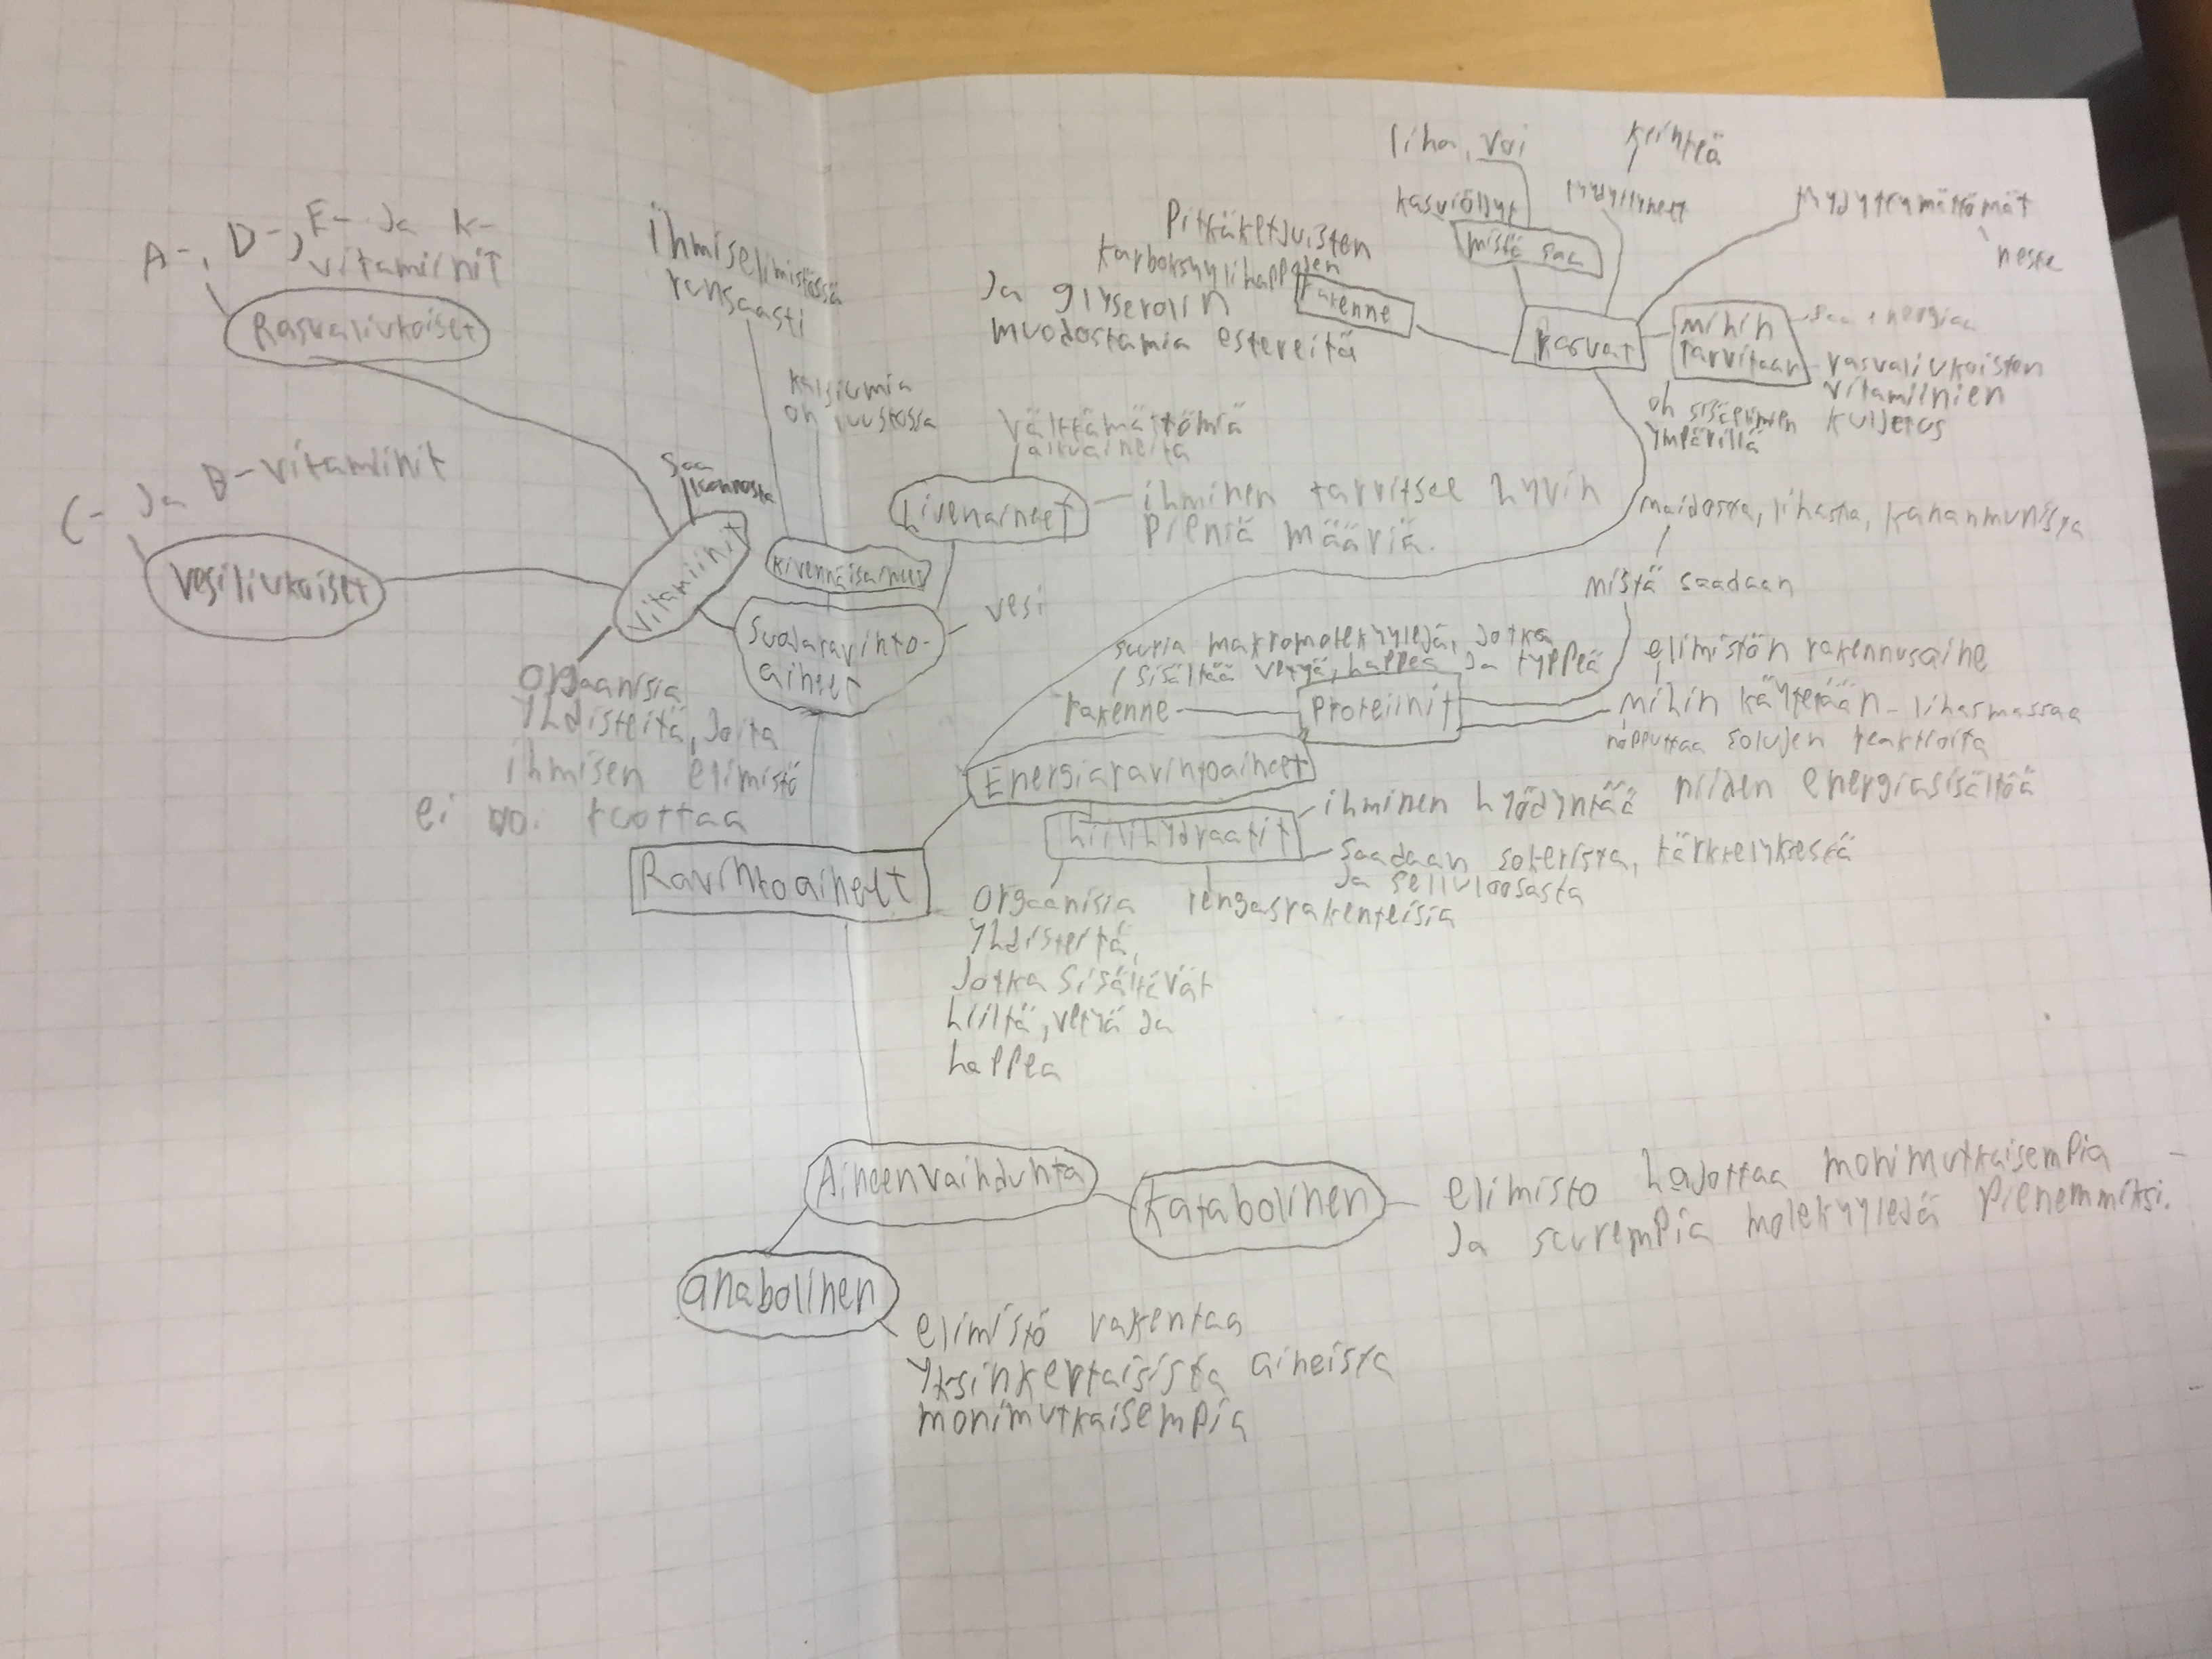 A-, D-, E- ja K-
vitamiinit
Rasvaliukoiset
C- ja B-vitamiinit
Vesiliukoiset
Ihmiselimistössä
runsaasti
kalsiumia
on juustossa
saa
Vitamiinit
Kivennäisaines
Suojaravinto-
aineet
vesi
Hivenaineet
Välttämättömiä
alkuaineita
ihminen tarvitsee hyvin
pieniä määriä.
organisia
yhdisteitä, joita
ihmisen elimistö
ei voi tuottaa
Ravintoaineet
Pitkäketjuisten
karboksyylihappojen
ja glyserolin
muodostamia estereitä
rakenne
liha, voi
kasviöljyt
mistä saa
kiinteä
tyydyttyneet
tyydyttymättömät
neste
Rasvat
mihin
tarvitaan
saa energiaa
rasvaliukoisten
vitamiinien
kuljetus
on sisäelimien
ympärillä
maidosta, lihasta, kananmunista
mistä saadaan
suuria makromolekyylejä, jotka
sisältää vetyä, happea ja typpeä
rakenne
Proteiinit
elimistön rakennusaine
mihin käytetään - lihasmassaa
nopeuttaa solujen reaktioita
Energiaravintoaineet
Hiilihydraatit
ihminen hyödyntää niiden energiasisältöä
saadaan sokerista, tärkkelyksestä
ja selluloosasta
rengasrakenteisia
orgaanisia
yhdisteitä,
jotka sisältävät
hiiltä, vetyä ja
happea
Aineenvaihdunta
Katabolinen
elimistö hajottaa monimutkaisempia
ja suurempia molekyylejä pienemmiksi.
anabolinen
elimistö rakentaa
yksinkertaisista aineista
monimutkaisempia